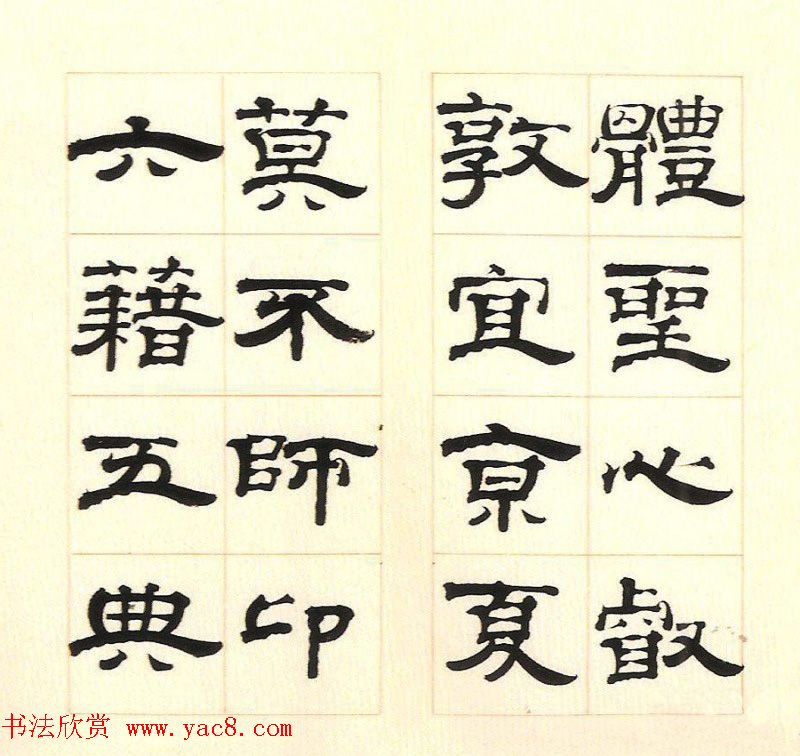 體聖心叡
敦宜亰夏
莫不師卬
六藉五典
书法欣赏 www.yac8.com